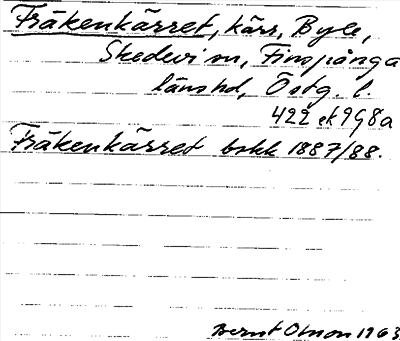 Fräkenkärret, kärr, Byle,
Skedevi sn, Finspånga
länshd, Östg. l.
422 ek 9G8a
Fräkenkärret bskk 1887/88.
Bernt Olsson 1963